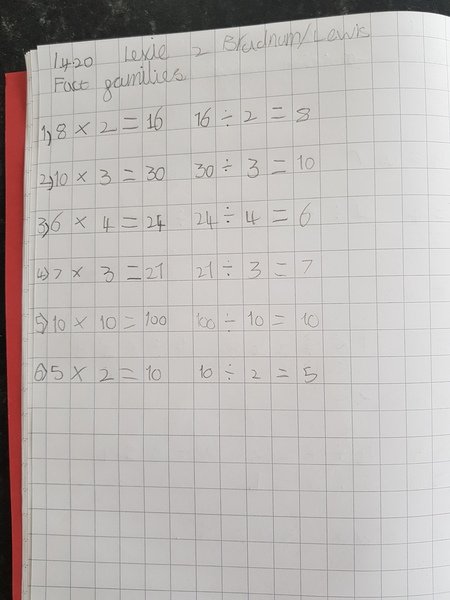 1.4.20 Lexie 2 Bradnum/Lewis
Fact families
1) 8 × 2 = 16 16 ÷ 2 = 8
2) 10 × 3 = 30 30 ÷ 3 = 10
3) 6 × 4 = 24 24 ÷ 4 = 6
4) 7 × 3 = 21 21 ÷ 3 = 7
5) 10 × 10 = 100 100 ÷ 10 = 10
6) 5 × 2 = 10 10 ÷ 2 = 5